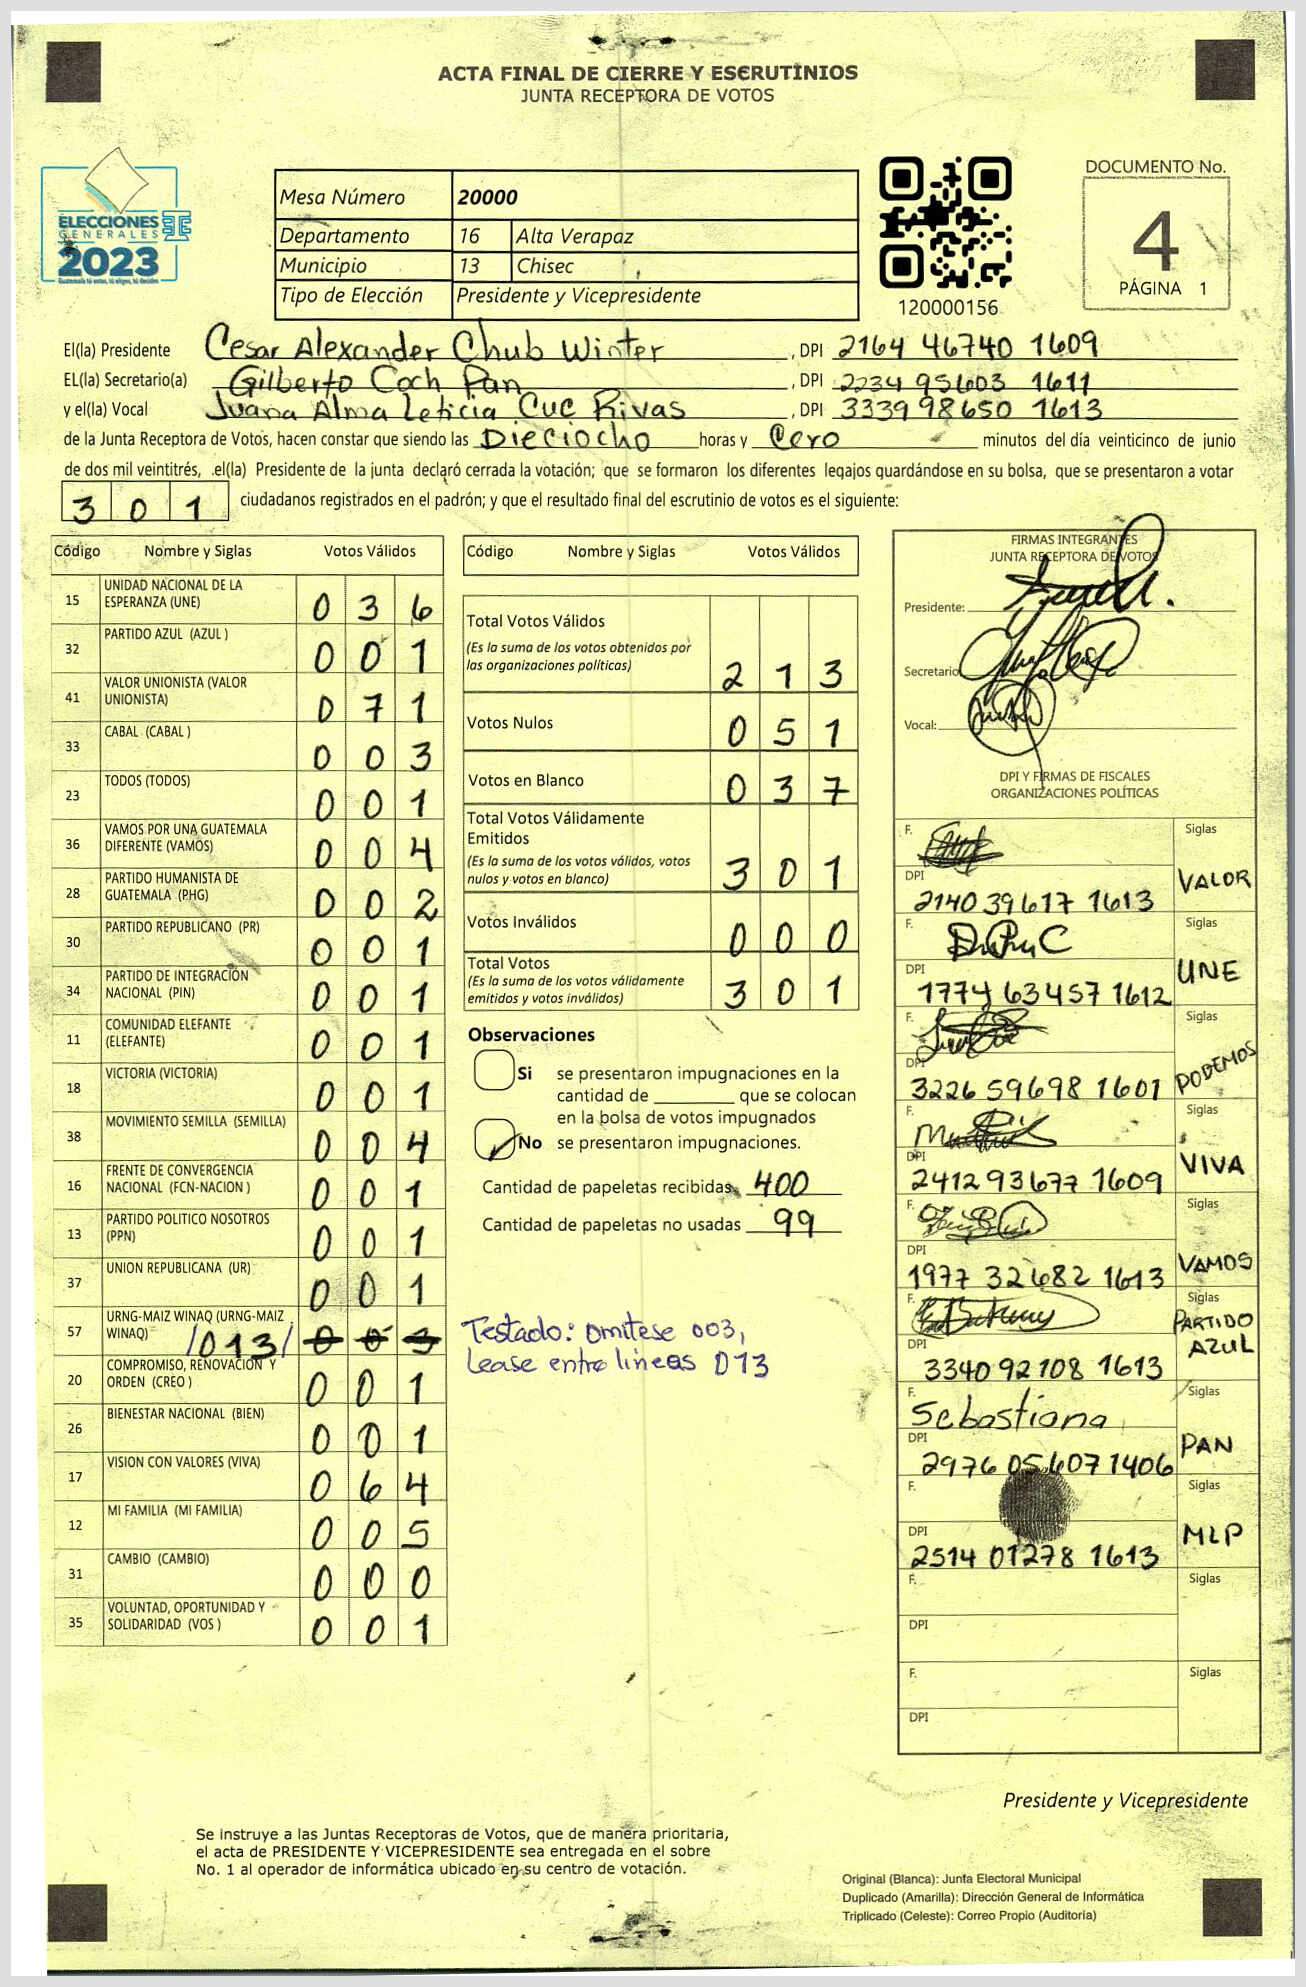 ACTA FINAL DE CIERRE Y ESCRUTINIOS
JUNTA RECEPTORA DE VOTOS
ELECCIONES
GENERALES
2023
Mesa Número 20000
Departamento 16 Alta Verapaz
Municipio 13 Chisec
Tipo de Elección Presidente y Vicepresidente
120000156
DOCUMENTO No.
4
PÁGINA 1
El(la) Presidente Cesar Alexander Chub Winter, DPI 2164 46740 1609
EL(la) Secretario(a) Gilberto Coch Pan, DPI 2234 95603 1611
y el(la) Vocal Juana Alma Leticia Cuc Rivas, DPI 3339 98650 1613
de la Junta Receptora de Votos, hacen constar que siendo las Dieciocho horas y Cero minutos del día veinticinco de junio
de dos mil veintitrés, .el(la) Presidente de la junta declaró cerrada la votación; que se formaron los diferentes legajos guardándose en su bolsa, que se presentaron a votar
301 ciudadanos registrados en el padrón; y que el resultado final del escrutinio de votos es el siguiente:
Código Nombre y Siglas Votos Válidos
15 UNIDAD NACIONAL DE LA ESPERANZA (UNE) 036
32 PARTIDO AZUL (AZUL ) 001
41 VALOR UNIONISTA (VALOR UNIONISTA) 071
33 CABAL (CABAL ) 003
23 TODOS (TODOS) 001
36 VAMOS POR UNA GUATEMALA DIFERENTE (VAMOS) 004
28 PARTIDO HUMANISTA DE GUATEMALA (PHG) 002
30 PARTIDO REPUBLICANO (PR) 001
34 PARTIDO DE INTEGRACIÓN NACIONAL (PIN) 001
11 COMUNIDAD ELEFANTE (ELEFANTE) 001
18 VICTORIA (VICTORIA) 001
38 MOVIMIENTO SEMILLA (SEMILLA) 004
16 FRENTE DE CONVERGENCIA NACIONAL (FCN-NACION ) 001
13 PARTIDO POLITICO NOSOTROS (PPN) 001
37 UNION REPUBLICANA (UR) 001
57 URNG-MAIZ WINAQ (URNG-MAIZ WINAQ) /013/ 003
20 COMPROMISO, RENOVACIÓN Y ORDEN (CREO ) 001
26 BIENESTAR NACIONAL (BIEN) 001
17 VISION CON VALORES (VIVA) 064
12 MI FAMILIA (MI FAMILIA) 005
31 CAMBIO (CAMBIO) 000
35 VOLUNTAD, OPORTUNIDAD Y SOLIDARIDAD (VOS ) 001
Código Nombre y Siglas Votos Válidos
Total Votos Válidos
(Es la suma de los votos obtenidos por
las organizaciones políticas) 213
Votos Nulos 051
Votos en Blanco 037
Total Votos Válidamente
Emitidos
(Es la suma de los votos válidos, votos
nulos y votos en blanco) 301
Votos Inválidos 000
Total Votos
(Es la suma de los votos válidamente
emitidos y votos inválidos) 301
Observaciones
Si se presentaron impugnaciones en la
cantidad de ________ que se colocan
en la bolsa de votos impugnados
No se presentaron impugnaciones.
Cantidad de papeletas recibidas 400
Cantidad de papeletas no usadas 99
Testado: omitese 003,
Lease entre lineas 013
FIRMAS INTEGRANTES
JUNTA RECEPTORA DE VOTOS
Presidente:
Secretario
Vocal:
DPI Y FIRMAS DE FISCALES
ORGANIZACIONES POLÍTICAS
F. Siglas
DPI 2140 39617 1613 VALOR
F. Siglas
DPI 1774 63457 1612 UNE
F. Siglas
DPI 3226 59698 1601 PODEMOS
F. Siglas
DPI 2412 93677 1609 VIVA
F. Siglas
DPI 1977 32682 1613 VAMOS
F. Siglas
DPI 3340 92108 1613 PARTIDO AZUL
F. Sebastiana Siglas
DPI 2976 05607 1406 PAN
F. Siglas
DPI 2514 01278 1613 MLP
F. Siglas
DPI
F. Siglas
DPI
Presidente y Vicepresidente
Se instruye a las Juntas Receptoras de Votos, que de manera prioritaria,
el acta de PRESIDENTE Y VICEPRESIDENTE sea entregada en el sobre
No. 1 al operador de informática ubicado en su centro de votación.
Original (Blanca): Junta Electoral Municipal
Duplicado (Amarilla): Dirección General de Informática
Triplicado (Celeste): Correo Propio (Auditoria)